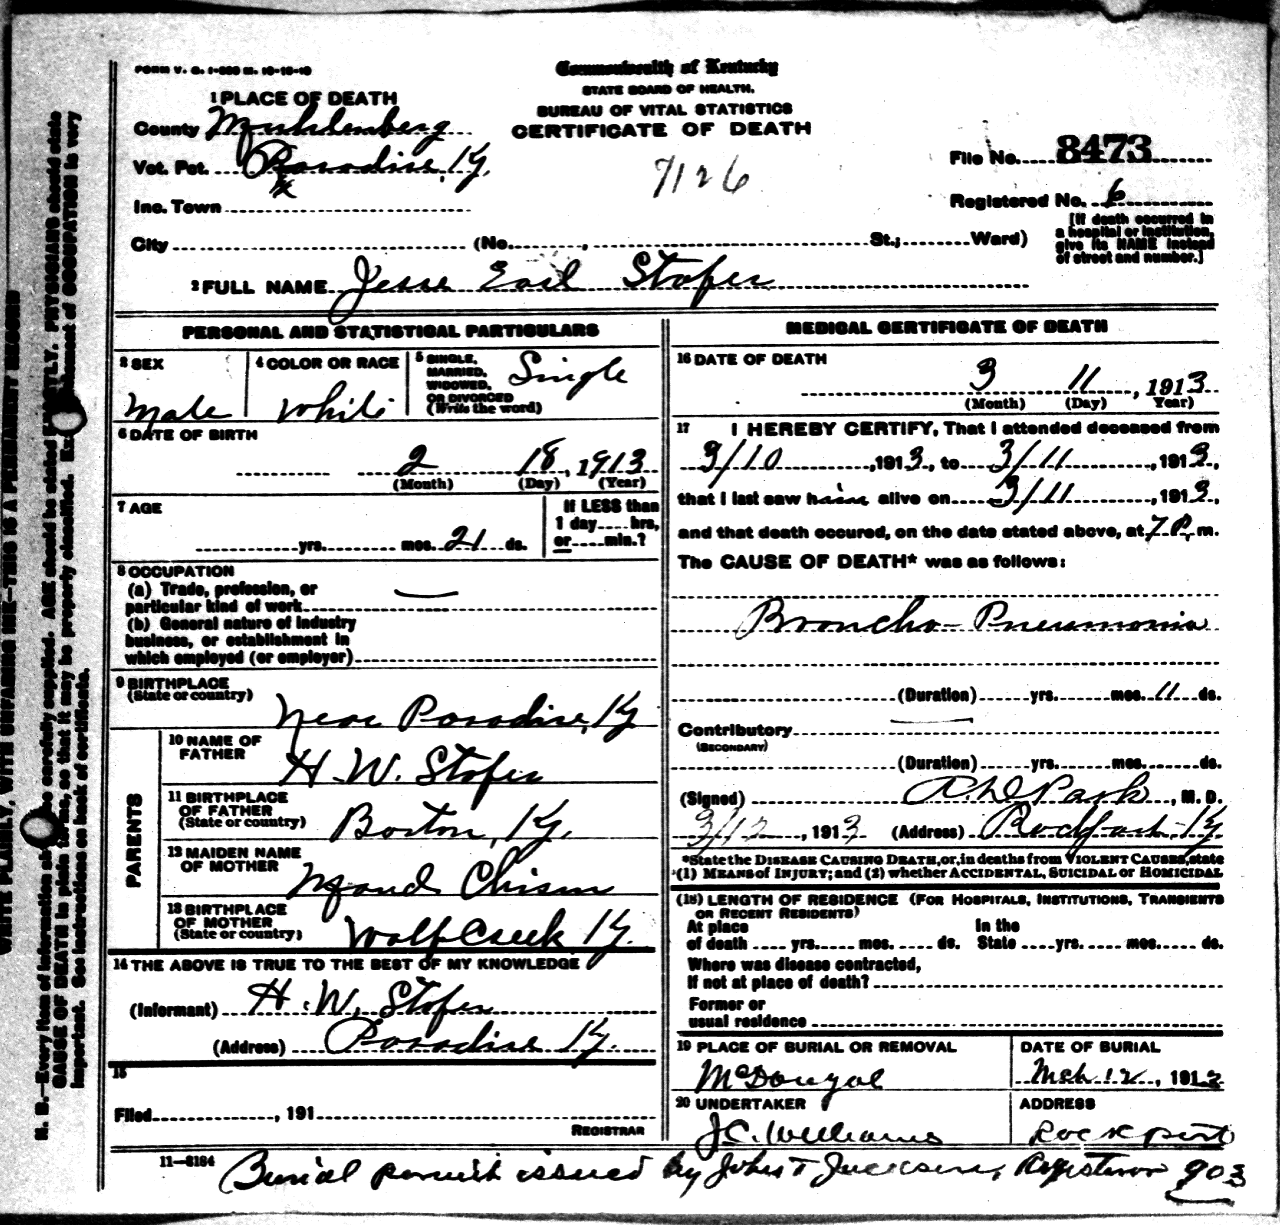 FORM V. S. 1-
Commonwealth of Kentucky
STATE BOARD OF HEALTH.
BUREAU OF VITAL STATISTICS
CERTIFICATE OF DEATH
1 PLACE OF DEATH
County Muhlenberg
Vot. Pct. Paradise, Ky.
Inc. Town
7126
File No. 8473
Registered No. 6
City (No. , St.; Ward)
[If death occurred in
a hospital or institution,
give its NAME instead
of street and number.]
2 FULL NAME Jesse Earl Stofer
PERSONAL AND STATISTICAL PARTICULARS
3 SEX
Male
4 COLOR OR RACE
White
5 SINGLE,
MARRIED,
WIDOWED,
OR DIVORCED
(Write the word)
Single
6 DATE OF BIRTH
2 18, 1913
(Month) (Day) (Year)
7 AGE
yrs. mos. 21 ds.
If LESS than
1 day hrs,
or min.?
8 OCCUPATION
(a) Trade, profession, or
particular kind of work
(b) General nature of industry
business, or establishment in
which employed (or employer)
9 BIRTHPLACE
(State or country)
Near Paradise, Ky
PARENTS
10 NAME OF
FATHER
H. W. Stofer
11 BIRTHPLACE
OF FATHER
(State or country)
Borton, Ky.
12 MAIDEN NAME
OF MOTHER
Maud Chism
13 BIRTHPLACE
OF MOTHER
(State or country)
Wolf Creek Ky.
14 THE ABOVE IS TRUE TO THE BEST OF MY KNOWLEDGE
(Informant) H. W. Stofer
(Address) Paradise Ky.
15
Filed , 191
REGISTRAR
MEDICAL CERTIFICATE OF DEATH
16 DATE OF DEATH
3 11, 1913
(Month) (Day) Year)
17 I HEREBY CERTIFY, That I attended deceased from
3/10, 1913, to 3/11, 1913,
that I last saw him alive on 3/11, 1913,
and that death occured, on the date stated above, at 7 P. m.
The CAUSE OF DEATH* was as follows:
Broncho-Pneumonia
(Duration) yrs. mos. 11 ds.
Contributory
(SECONDARY)
(Duration) yrs. mos. ds.
(Signed) Park, M. D.
3/12, 1913 (Address) Ky
*State the DISEASE CAUSING DEATH, or, in deaths from VIOLENT CAUSES, state
(1) MEANS of INJURY; and (2) whether ACCIDENTAL, SUICIDAL or HOMICIDAL
(18) LENGTH OF RESIDENCE (FOR HOSPITALS, INSTITUTIONS, TRANSIENTS
OR RECENT RESIDENTS)
At place In the
of death yrs. mos. ds. State yrs. mos. ds.
Where was disease contracted,
If not at place of death?
Former or
usual residence
19 PLACE OF BURIAL OR REMOVAL
McDougal
DATE OF BURIAL
Mch 12, 191
20 UNDERTAKER
J.C. Williams
ADDRESS
Rockport
11—8184
Burial permit issued by John T Jackson, Registrar 903
N. B.—Every item of information should be carefully supplied. AGE should be stated EXACTLY. PHYSICIANS should state
CAUSE OF DEATH in plain terms, so that it may be properly classified. Exact statement of OCCUPATION is very
important. See instructions on back of certificate.
WRITE PLAINLY, WITH UNFADING INK—THIS IS A PERMANENT RECORD